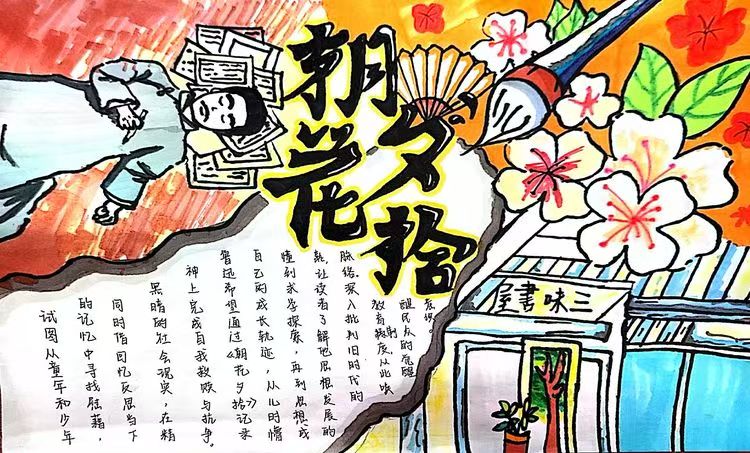 朝花
夕拾
三味書屋
试图从童年和少年
的记忆中寻找慰藉，
同时借回忆反思当下
黑暗的社会现实，在精
神上完成自我救赎与抗争。
鲁迅希望通过《朝花夕拾》记录
自己的成长轨迹，从儿时懵
懂到求学探索，再到思想成
熟，让读者了解他思想发展的
脉络。深入批判旧时代的
教育制度从此唤
醒民众的觉醒
意识。